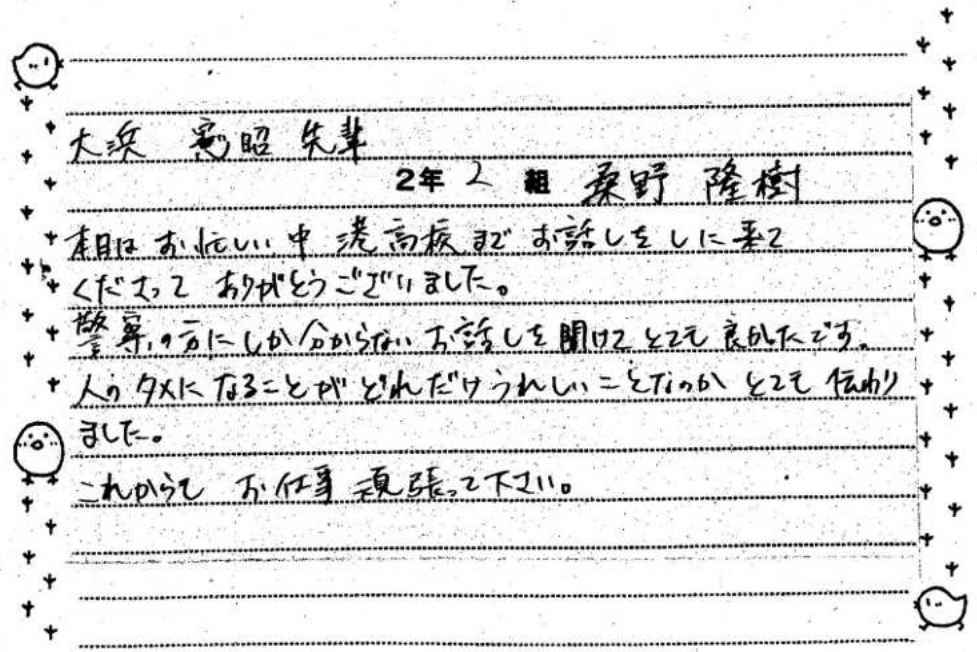 大浜 憲昭 先輩
2年 2 組 桑野 隆樹
本日は お忙しい 中 港高校 まで お話しを しに 来て
くださって ありがとうございました。
警察の方にしか分からない お話しを 聞けて とても 良かったです。
人の タメに なることが どれだけ うれしい ことなのか とても 伝わり
ました。
これからも お仕事 頑張って下さい。